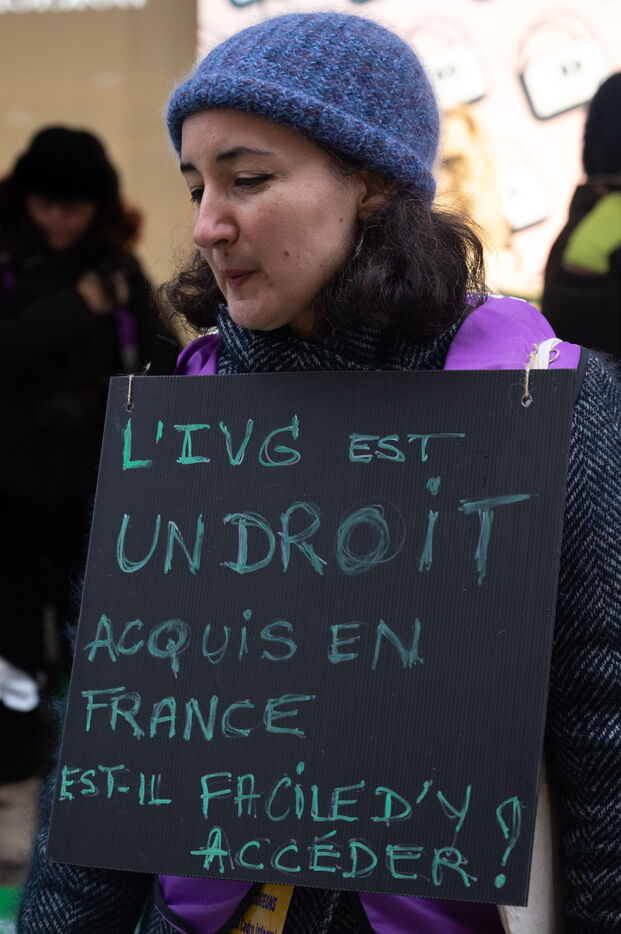 L'IVG EST
UN DROIT
ACQUIS EN
FRANCE
EST-IL FACILE D'Y
ACCÉDER ?